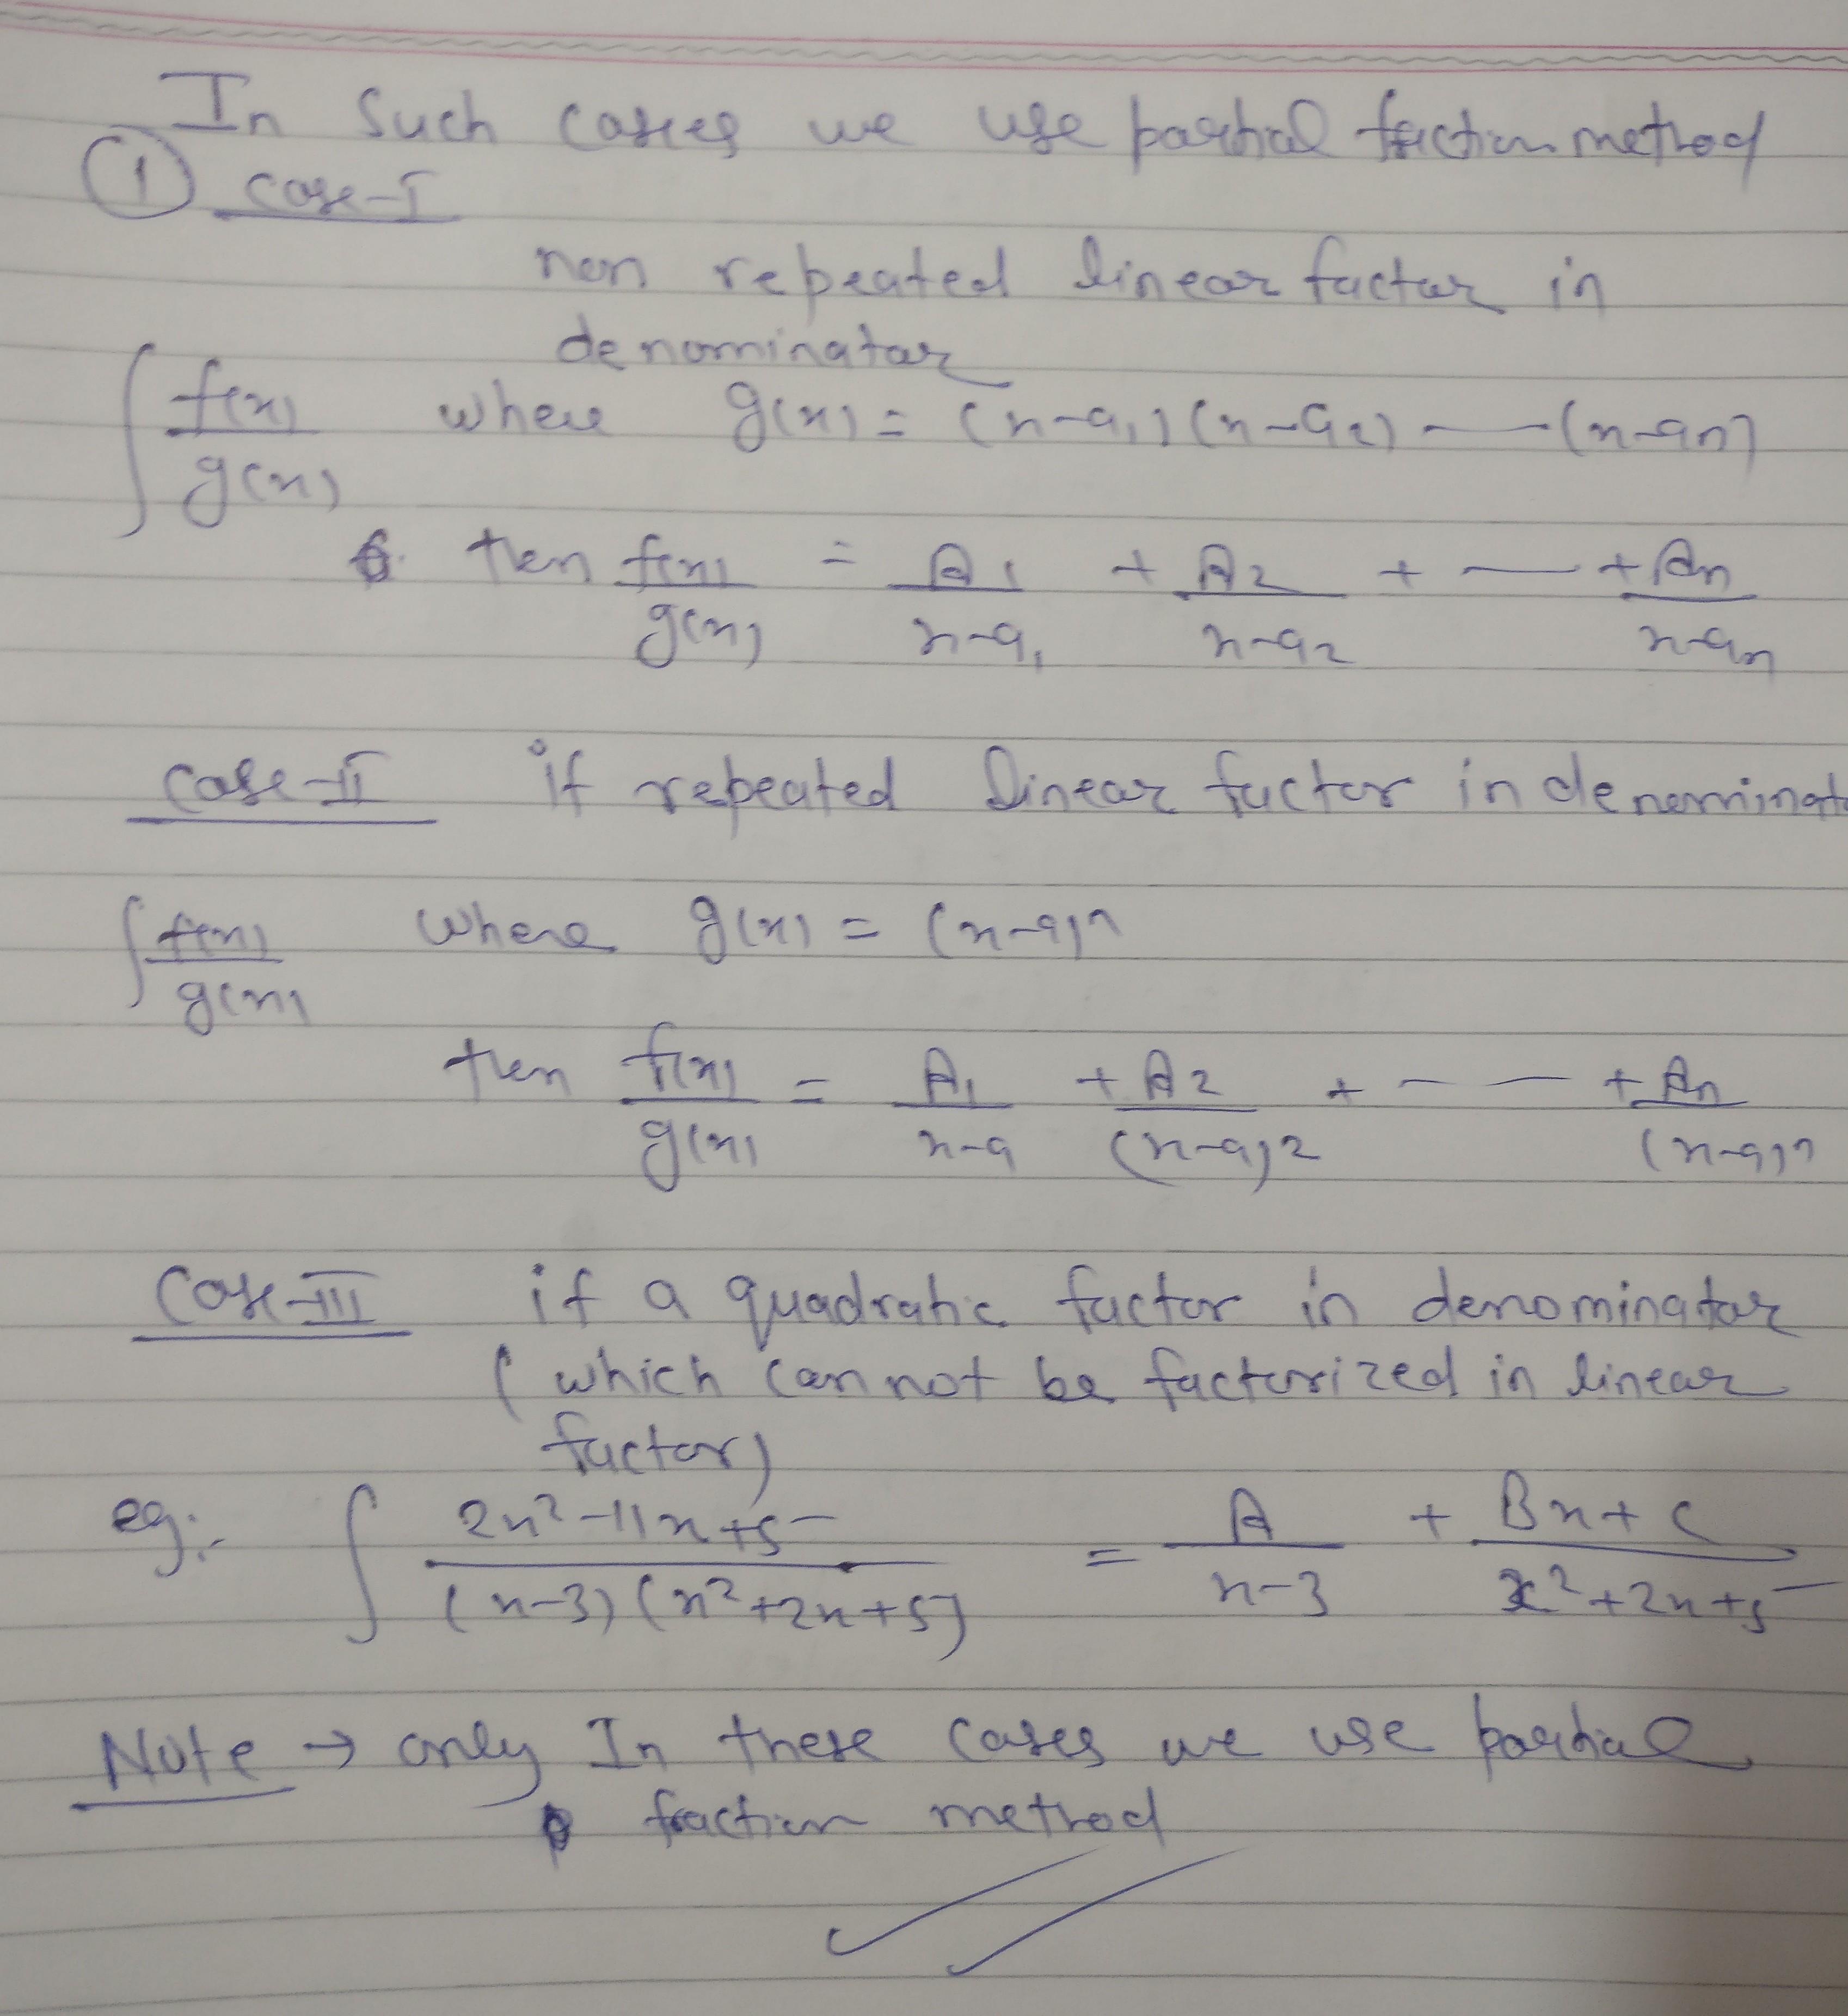 In Such cases we use partial fraction method
① case-I
non repeated linear factor in
denominator
∫ f(x)/g(x) where g(x) = (x-a₁)(x-a₂) -- (x-aₙ)
then f(x)/g(x) = A₁/x-a₁ + A₂/x-a₂ + -- + Aₙ/x-aₙ
Case-II if repeated linear factor in denominat
∫ f(x)/g(x) where g(x) = (x-a)ⁿ
then f(x)/g(x) = A₁/x-a + A₂/(x-a)² + -- + Aₙ/(x-a)ⁿ
Case-III if a quadratic factor in denominator
( which can not be factorized in linear
factor)
eg:- ∫ 2x²-11x+5/(x-3)(x²+2x+5) = A/x-3 + Bx+C/x²+2x+5
Note → only In these cases we use partial
fraction method